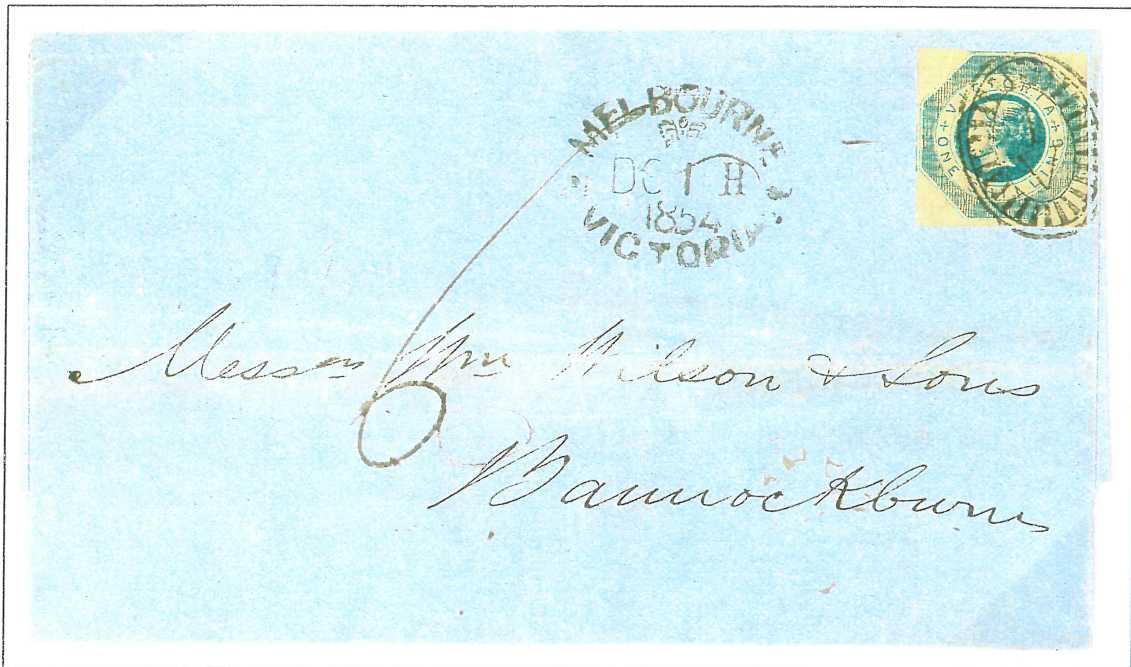 MELBOURNE
DC 1 H
1854
VICTORIA
VICTORIA
ONE
6
Messrs Wm Wilson & Sons
Bannockburn